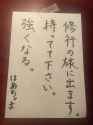 修行の旅に出ます。
持ってて下さい。
強くなる。
はあちゃま